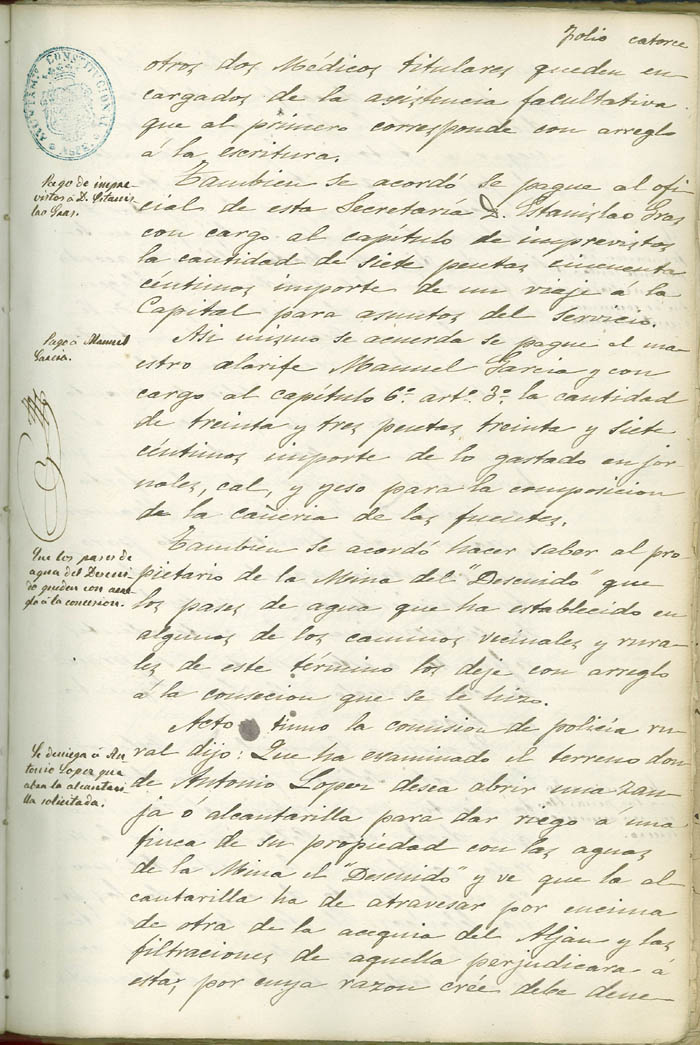 Folio catorce
AYUNTAMTO CONSTITUCIONAL
ASPE
otros dos Médicos titulares queden en-
cargados de la asistencia facultativa
que al primero corresponde con arreglo
á la escritura.
Pago de impre-
vistos á D. Estanis-
lao Gras.
Tambien se acordó se pague al ofi-
cial de esta Secretaría D. Estanislao Gras
con cargo al capítulo de imprevistos
la cantidad de siete pesetas cincuenta
céntimos importe de un viaje á la
Capital para asuntos del servicio.
Pago á Manuel
Garcia.
Asi mismo se acuerda se pague al ma-
estro alarife Manuel Garcia y con
cargo al capítulo 6º artº 3º la cantidad
de treinta y tres pesetas treinta y siete
céntimos importe de lo gastado en jor-
nales, cal, y yeso para la composicion
de la cañeria de las fuentes.
Que los pases de
agua del Descui-
do queden con arre-
glo á la concesion.
Tambien se acordó hacer saber al pro-
pietario de la Mina del "Descuido" que
los pases de agua que ha establecido en
algunos de los caminos vecinales y rura-
les de este término los deje con arreglo
á la consecion que se le hizo.
Se deniega á An-
tonio Lopez que
abra la alcantari-
lla solicitada.
Acto tinuo la comision de policía ru-
ral dijo: Que ha examinado el terreno don-
de Antonio Lopez desea abrir una zan-
ja ó alcantarilla para dar riego a una
finca de su propiedad con las aguas
de la Mina el "Descuido" y ve que la al-
cantarilla ha de atravesar por encima
de otra de la acequia del Aljau y las
filtraciones de aquella perjudicara á
esta; por cuya razon crée debe dene-